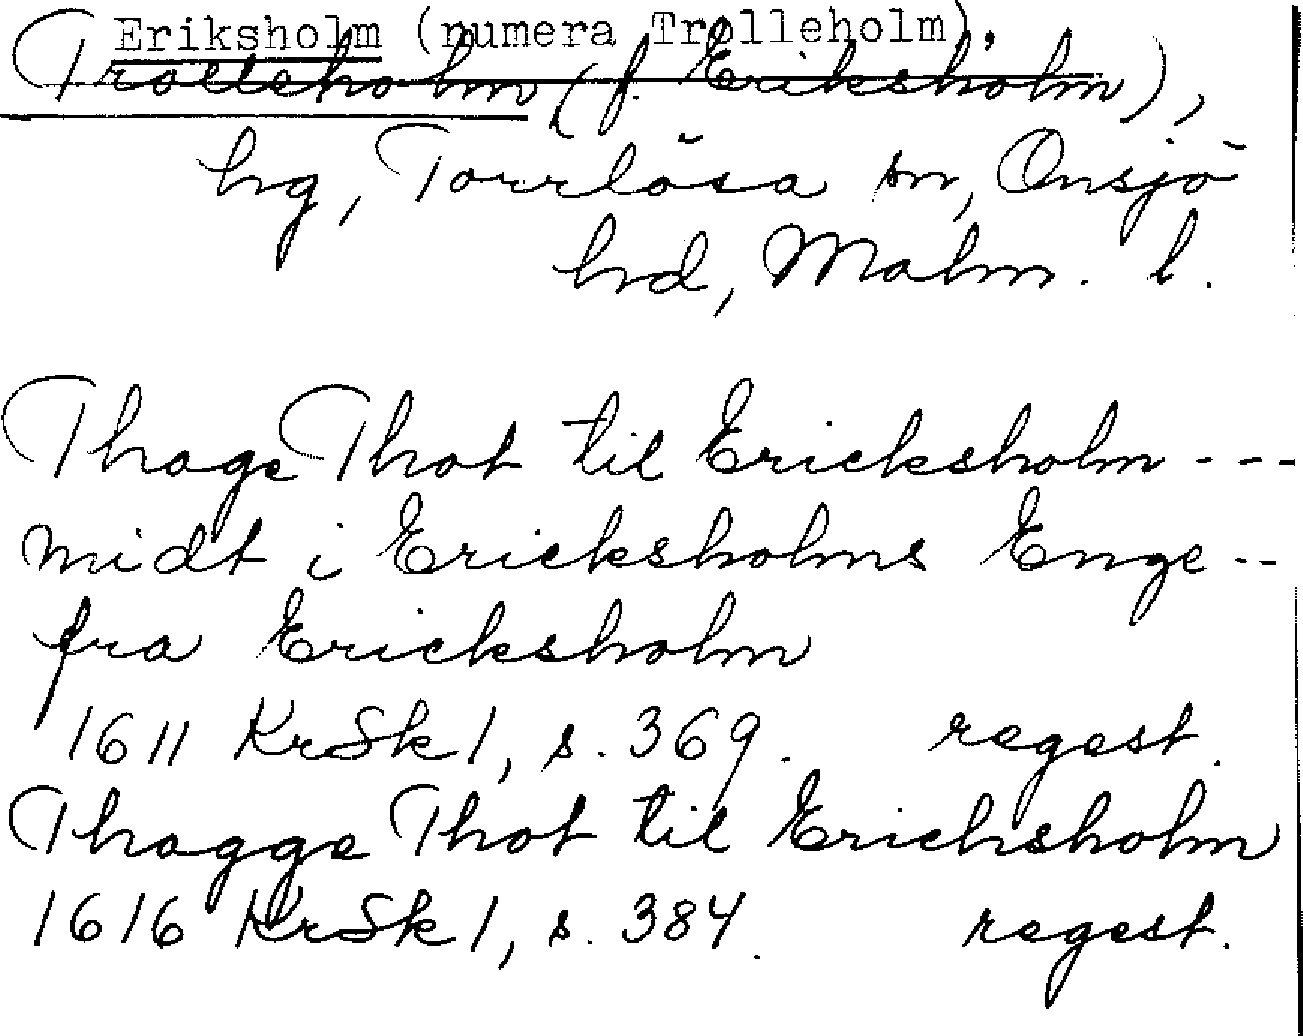 Eriksholm (numera Trolleholm),
Trolleholm (f. Eriksholm),
hg, Torrlösa sn, Onsjö
hd, Malm. l.
Thage Thot til Ericksholm ---
midt i Ericksholms Enge --
fra Ericksholm
1611 KrSk 1, s. 369. regest.
Thagge Thot til Erichsholm
1616 KrSk 1, s. 384. regest.